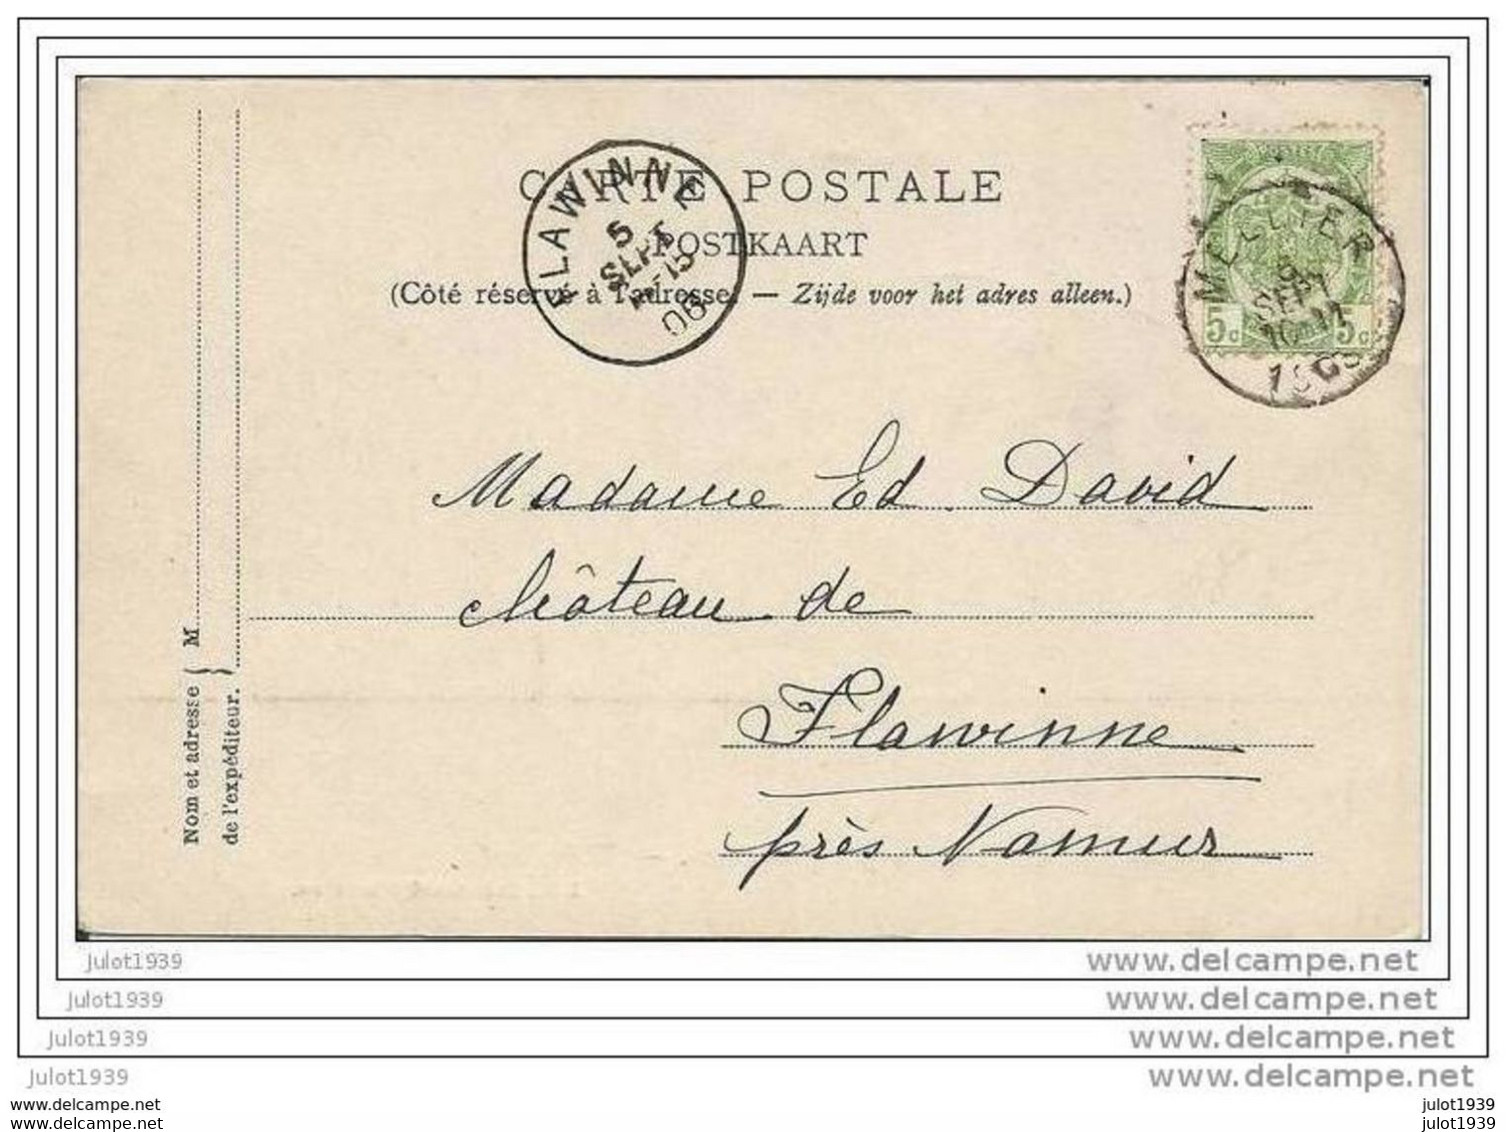 CARTE POSTALE
POSTKAART
(Côté réservé à l'adresse. — Zijde voor het adres alleen.)
FLAWINNE
5
SEPT
15
06
MELLIER
SEPT
5c 5c
Madame Ed. David
Château de
Flawinne
près Namur
Nom et adresse { M
de l'expéditeur. }
julot1939 www.delcampe.net
julot1939 www.delcampe.net
julot1939 www.delcampe.net
julot1939 www.delcampe.net
www.delcampe.net julot1939
www.delcampe.net julot1939